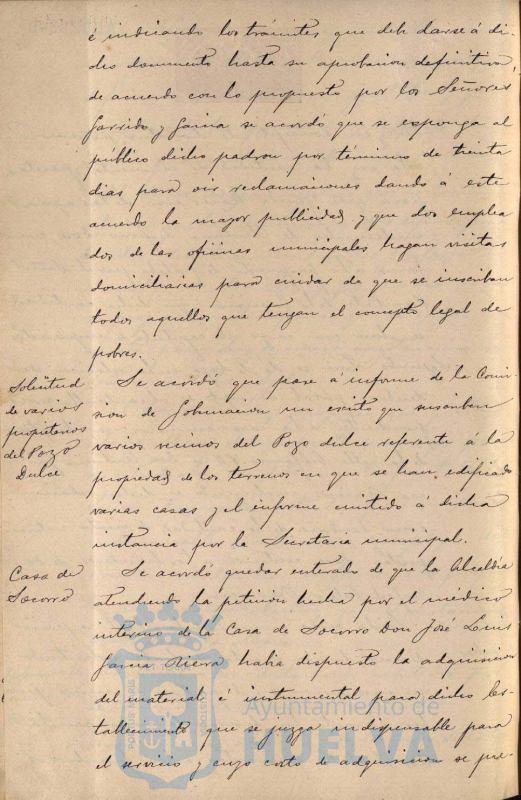 é indicando los trámites que deb darse á di-
cho documento hasta su aprobacion definitiva,
de acuerdo con lo propuesto por los Señores
Garrido y Gaina se acordó que se esponga al
público dicho padron por término de treinta
dias para oir reclamaciones dando á este
acuerdo la mayor publicidad y que dos emplea
dos de las oficinas municipales hagan visitas
domiciliarias para cuidar de que se inscriban
todos aquellos que tengan el concepto legal de
pobres.
Solicitud
de varios
propietarios
del Pozo
Dulce
Se acordó que pase á informe de la Comi-
sion de Gobernacion un escrito que suscriben
varios vecinos del Pozo dulce referente á la
propiedad de los terrenos en que se han edificado
varias casas y el informe emitido á dicha
instancia por la Secretaria municipal.
Casa de
Socorro
Se acordó quedar enterado de que la Alcaldia
atendiendo la peticion hecha por el médico
interino de la Casa de Socorro Don José Luis
Garcia habia dispuesto la adquisicion
del material é instrumental para dicho Es-
tablecimiento que se juzga indispensable para
el servicio y cuyo costo de adquisicion se pre-
Ayuntamiento de
HUELVA